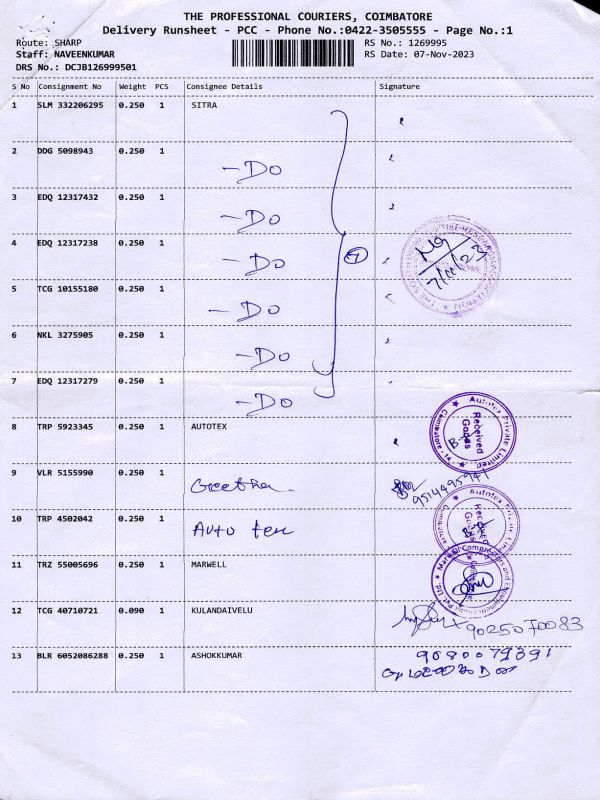 THE PROFESSIONAL COURIERS, COIMBATORE
Delivery Runsheet - PCC - Phone No.:0422-3505555 - Page No.:1
Route: SHARP RS No.: 1269995
Staff: NAVEENKUMAR RS Date: 07-Nov-2023
DRS No.: DCJB126999501
S No Consignment No Weight PCS Consignee Details Signature
1 SLM 332206295 0.250 1 SITRA
2 DDG 5098943 0.250 1 - Do
3 EDQ 12317432 0.250 1 - Do
4 EDQ 12317238 0.250 1 - Do 7
5 TCG 10155180 0.250 1 - Do 7/11/23
6 NKL 3275905 0.250 1 - Do
7 EDQ 12317279 0.250 1 - Do
8 TRP 5923345 0.250 1 AUTOTEX
Autotex Private Limited
Received Goods
Coimbatore
9 VLR 5155990 0.250 1 Geetha
10 TRP 4502042 0.250 1 Auto tex
11 TRZ 55005696 0.250 1 MARWELL
12 TCG 40710721 0.090 1 KULANDAIVELU 9025070083
13 BLR 6052086288 0.250 1 ASHOKKUMAR 9080079391